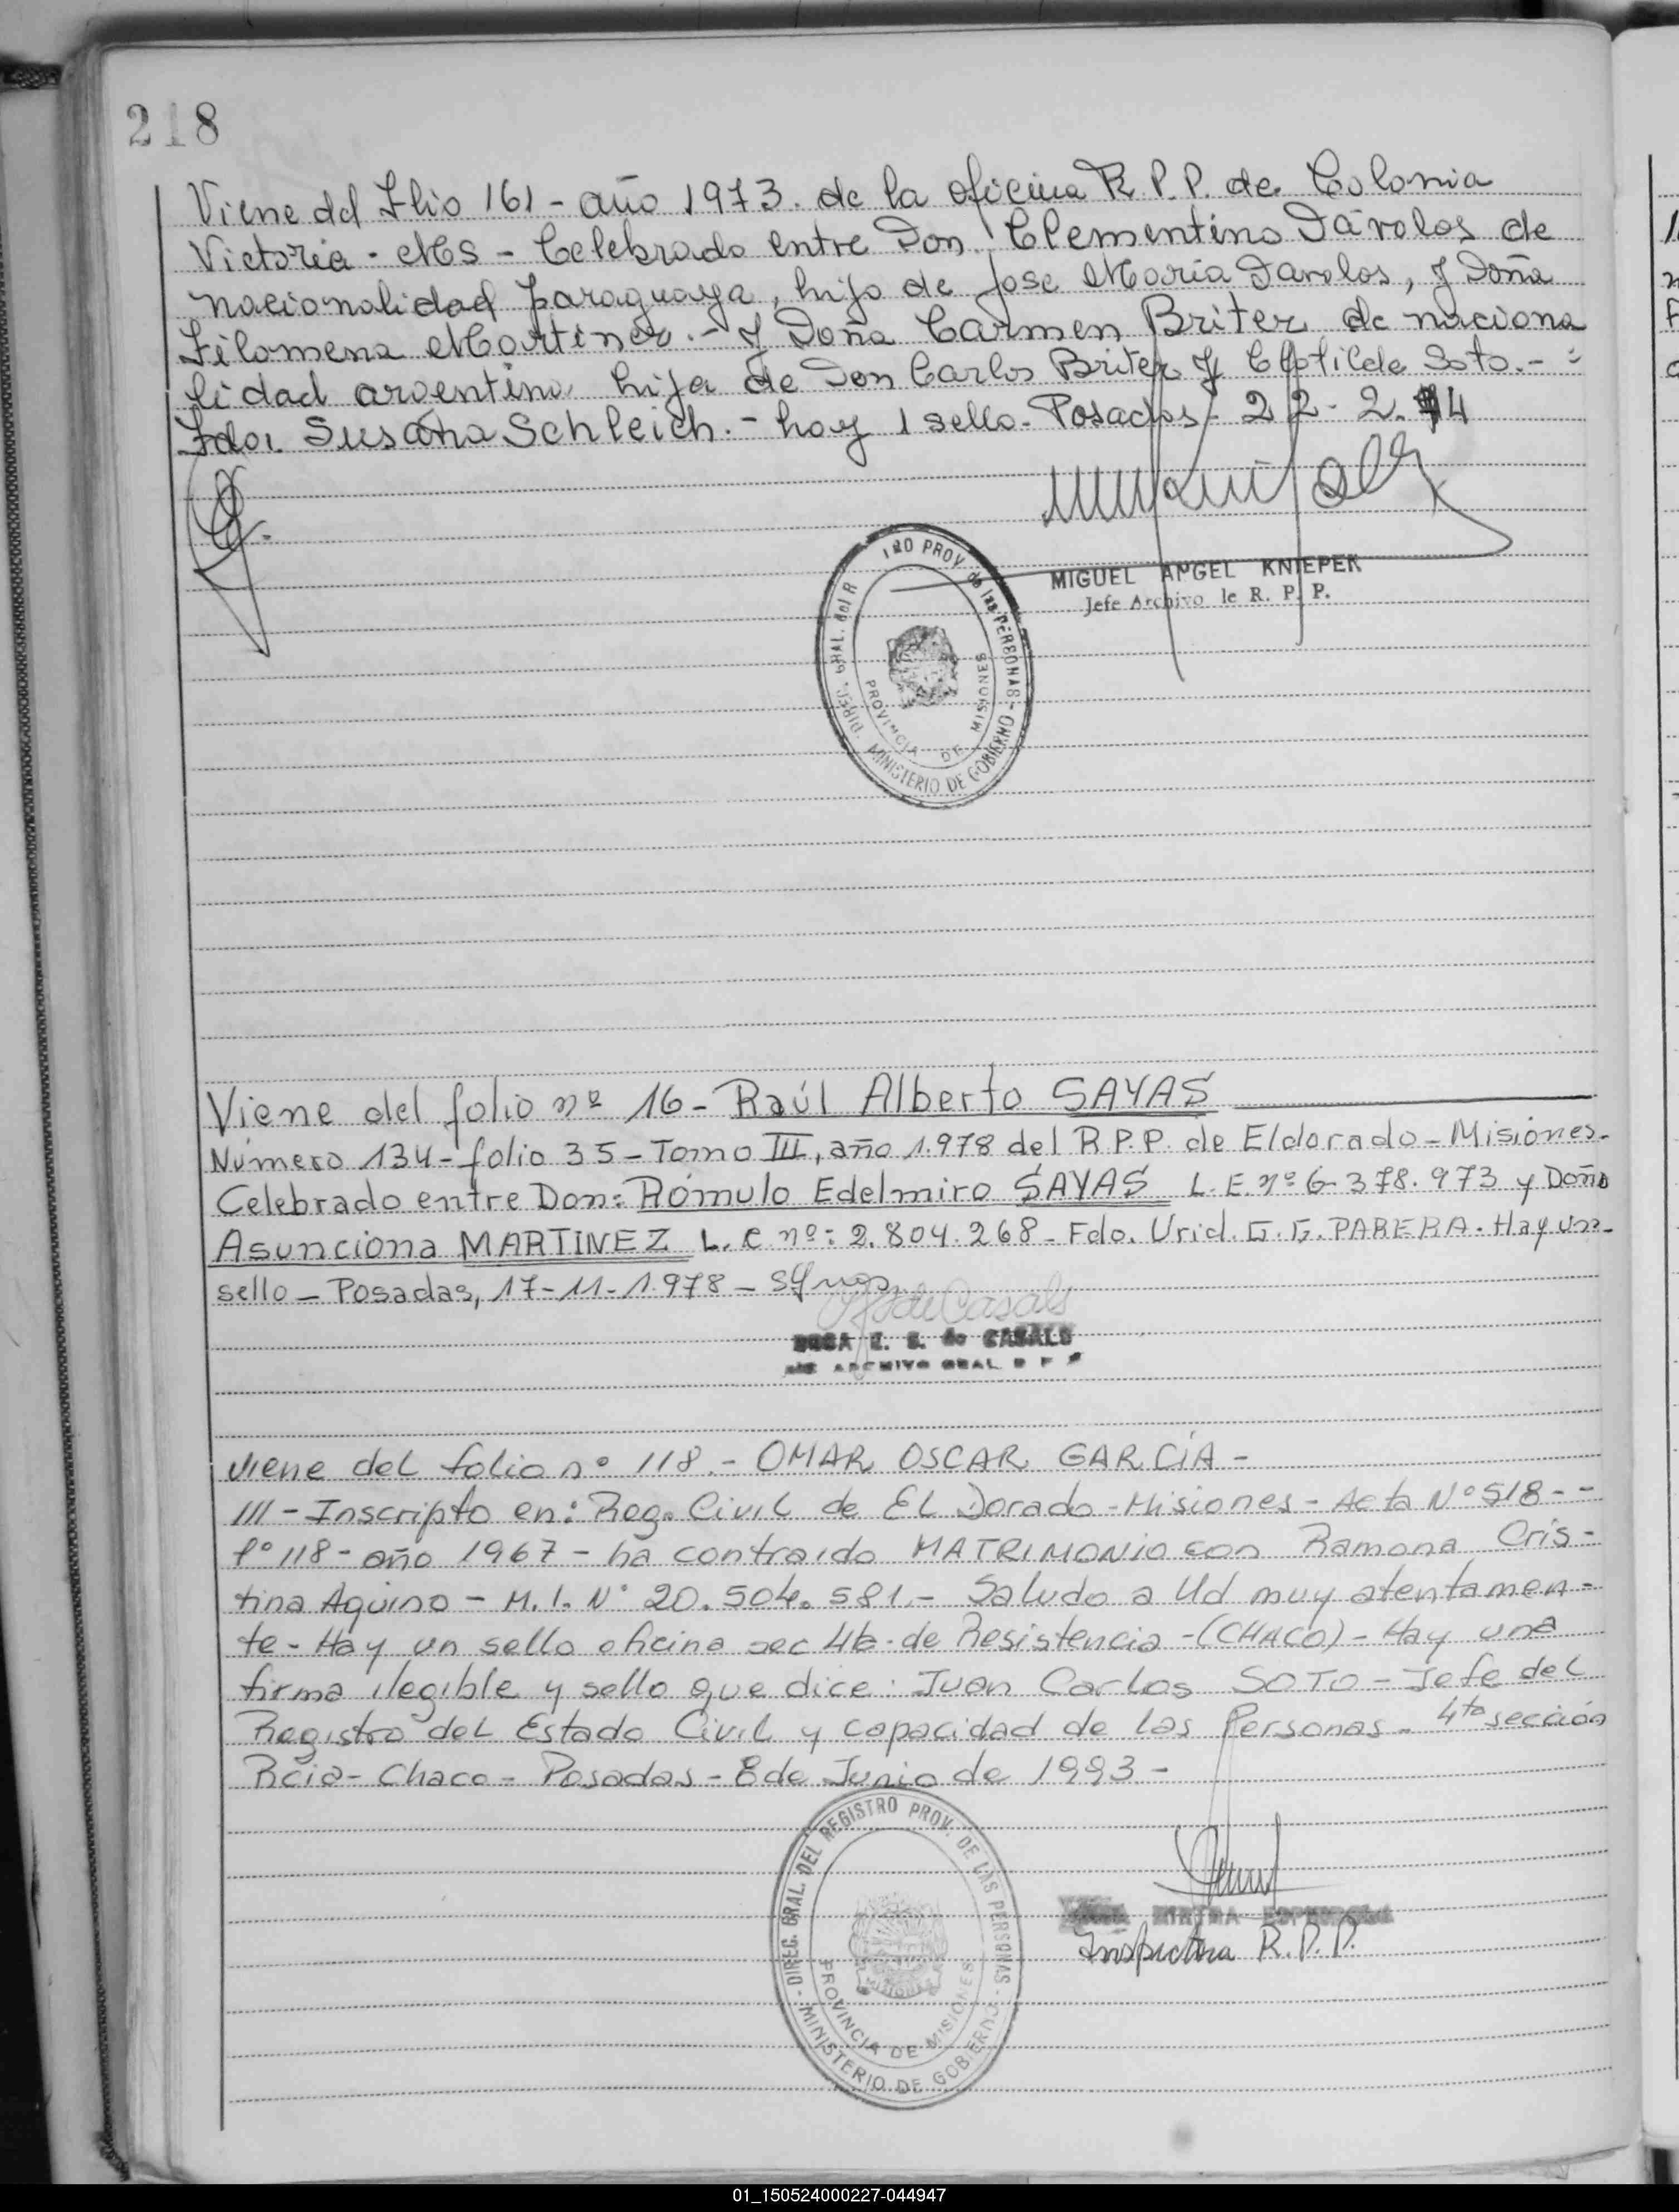 218
Viene del Flio 161 - año 1973. de la oficina R.P.P. de Colonia
Victoria - Ms - Celebrado entre Don Clementino Dávolos de
nacionalidad paraguaya, hijo de Jose María Davolos, y Doña
Filomena Martinez. - y Doña Carmen Briter de naciona
lidad argentina hija de Don Carlos Briter y Clotilde Soto. -
Fdo. Susana Schleich. - hay 1 sello - Posadas - 22 - 2 - 74
MIGUEL ANGEL KNIEPER
Jefe Archivo de R. P. P.
PROV de las PERSONAS - MINISTERIO DE GOBIERNO - DIREC. GRAL. del R
PROVINCIA DE MISIONES
Viene del folio nº 16 - Raúl Alberto SAYAS
Número 134 - folio 35 - Tomo III, año 1.978 del R.P.P. de Eldorado - Misiones.
Celebrado entre Don: Rómulo Edelmiro SAYAS L.E. nº 6.378.973 y Doña
Asunciona MARTINEZ L.C nº: 2.804.268 - Fdo. Urid. G. G. PARERA. Hay un
sello - Posadas, 17-11-1.978 -
de Casals
E. S. de CASALS
ARCHIVO GRAL
viene del folio nº 118. - OMAR OSCAR GARCÍA -
III - Inscripto en: Reg. Civil de El Dorado - Misiones - Acta Nº 518 - -
fº 118 - año 1967 - ha contraido MATRIMONIO con Ramona Cris-
tina Aquino - M. I. Nº 20.504.581. - Saludo a Ud muy atentamen-
te - Hay un sello oficina sec 4ta. de Resistencia - (CHACO) - Hay una
firma ilegible y sello que dice: Juan Carlos SOTO - Jefe del
Registro del Estado Civil y capacidad de las Personas - 4ta sección
Rcia - Chaco - Posadas - 8 de Junio de 1993 -
DIREC. GRAL. DEL REGISTRO PROV. DE LAS PERSONAS - MINISTERIO DE GOBIERNO -
PROVINCIA DE MISIONES
Inspectora R.P.P.
01_150524000227-044947